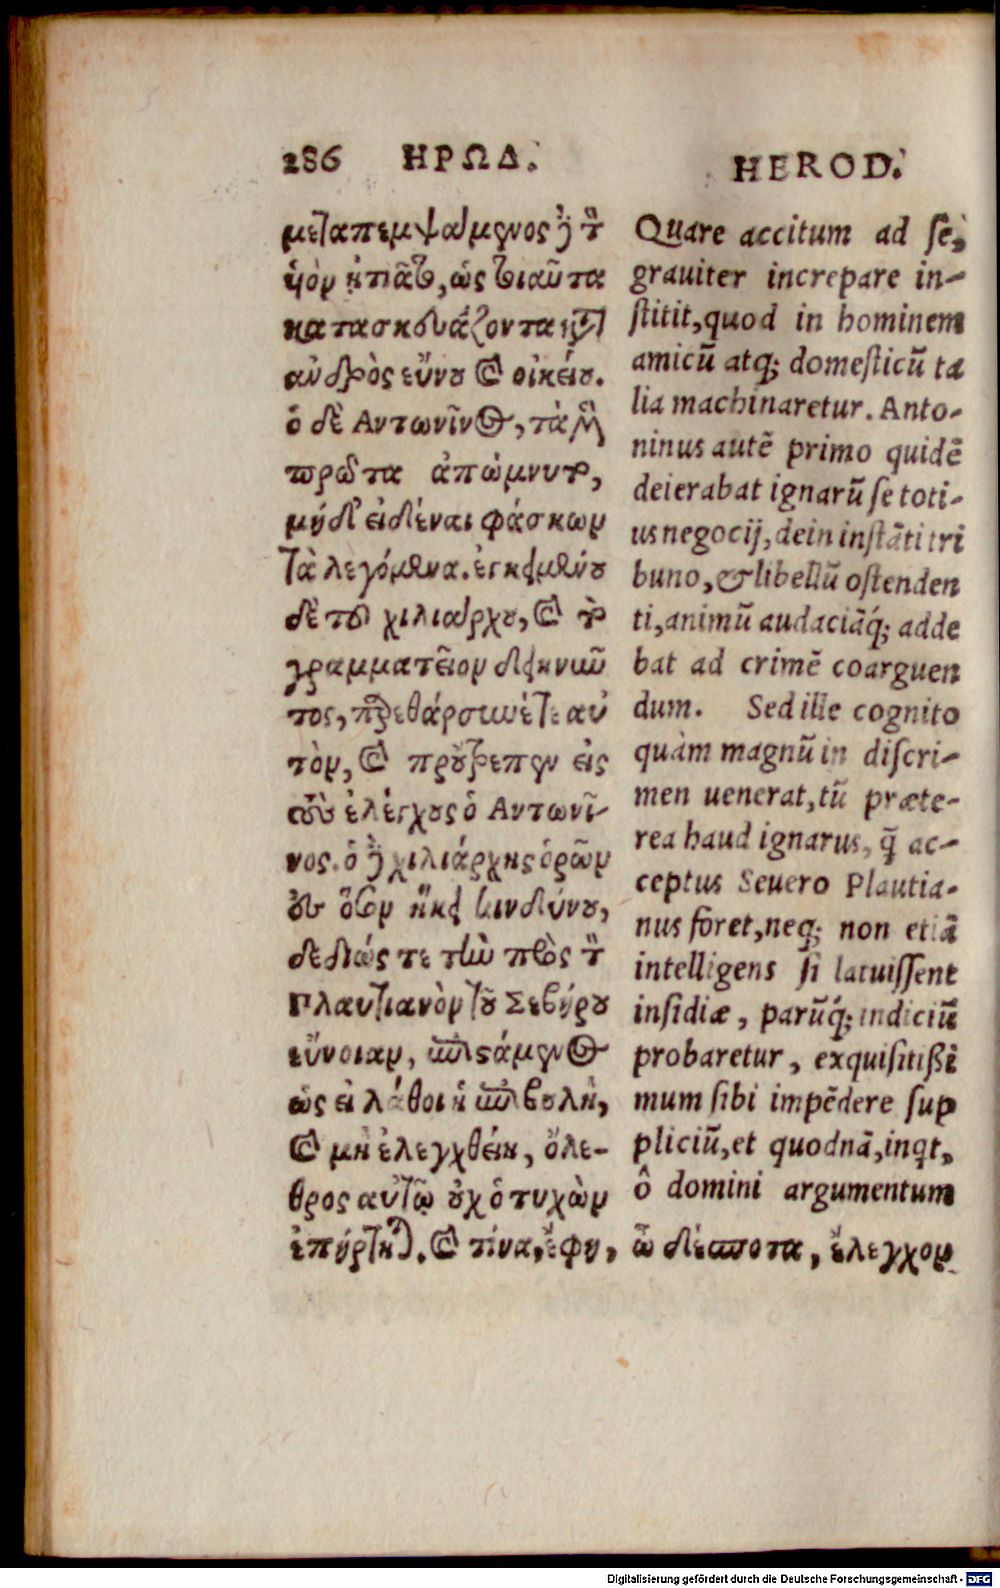 286 ΗΡΩΔ. HEROD.
μεταπεμψάμενος δὲ τὸν
ὑὸν ᾐτιᾶτο, ὡς τοιαῦτα
κατασκευάζοντα κατὰ
ἀνδρὸς εὔνου καὶ οἰκείου.
ὁ δὲ Αντωνῖνος, τὰ μὲν
πρῶτα ἀπώμνυτο,
μηδ' εἰδέναι φάσκων
τὰ λεγόμενα. ἐγκειμένου
δὲ τοῦ χιλιάρχου, καὶ τὸ
γραμματεῖον δεικνύν
τος, παρεθάρσυνέ τε αὐ
τὸν, καὶ προύτρεπεν εἰς
τοὺς ἐλέγχους ὁ Αντωνῖ-
νος. ὁ δὲ χιλιάρχης ὁρῶν
οὗ ὅσον ἥκει κινδύνου,
δεδιώς τε τὴν πρὸς τὸν
Πλαυτιανὸν τοῦ Σεβήρου
εὔνοιαν, ἐπιστάμενος
ὡς εἰ λάθοι ἡ ἐπιβουλὴ,
καὶ μὴ ἐλεγχθείη, ὄλε-
θρος αὐτῷ οὐχ ὁ τυχὼν
ἐπήρτηται. καὶ τίνα, ἔφη, ὦ δέσποτα, ἔλεγχον
Quare accitum ad se,
grauiter increpare in-
stitit, quod in hominem
amicũ atq; domesticũ ta
lia machinaretur. Anto-
ninus autẽ primo quidẽ
deierabat ignarũ se toti-
us negocij, dein instãti tri
buno, & libellũ ostenden
ti, animũ audaciãq́; adde
bat ad crimẽ coarguen
dum. Sed ille cognito
quàm magnũ in discri-
men uenerat, tũ præte-
rea haud ignarus, q̃ ac-
ceptus Seuero Plautia-
nus foret, neq; non etiã
intelligens si latuissent
insidiæ, parũq́; indiciũ
probaretur, exquisitißi
mum sibi impẽdere sup
pliciũ, et quodnã, inqt,
ô domini argumentum
Digitalisierung gefördert durch die Deutsche Forschungsgemeinschaft - DFG